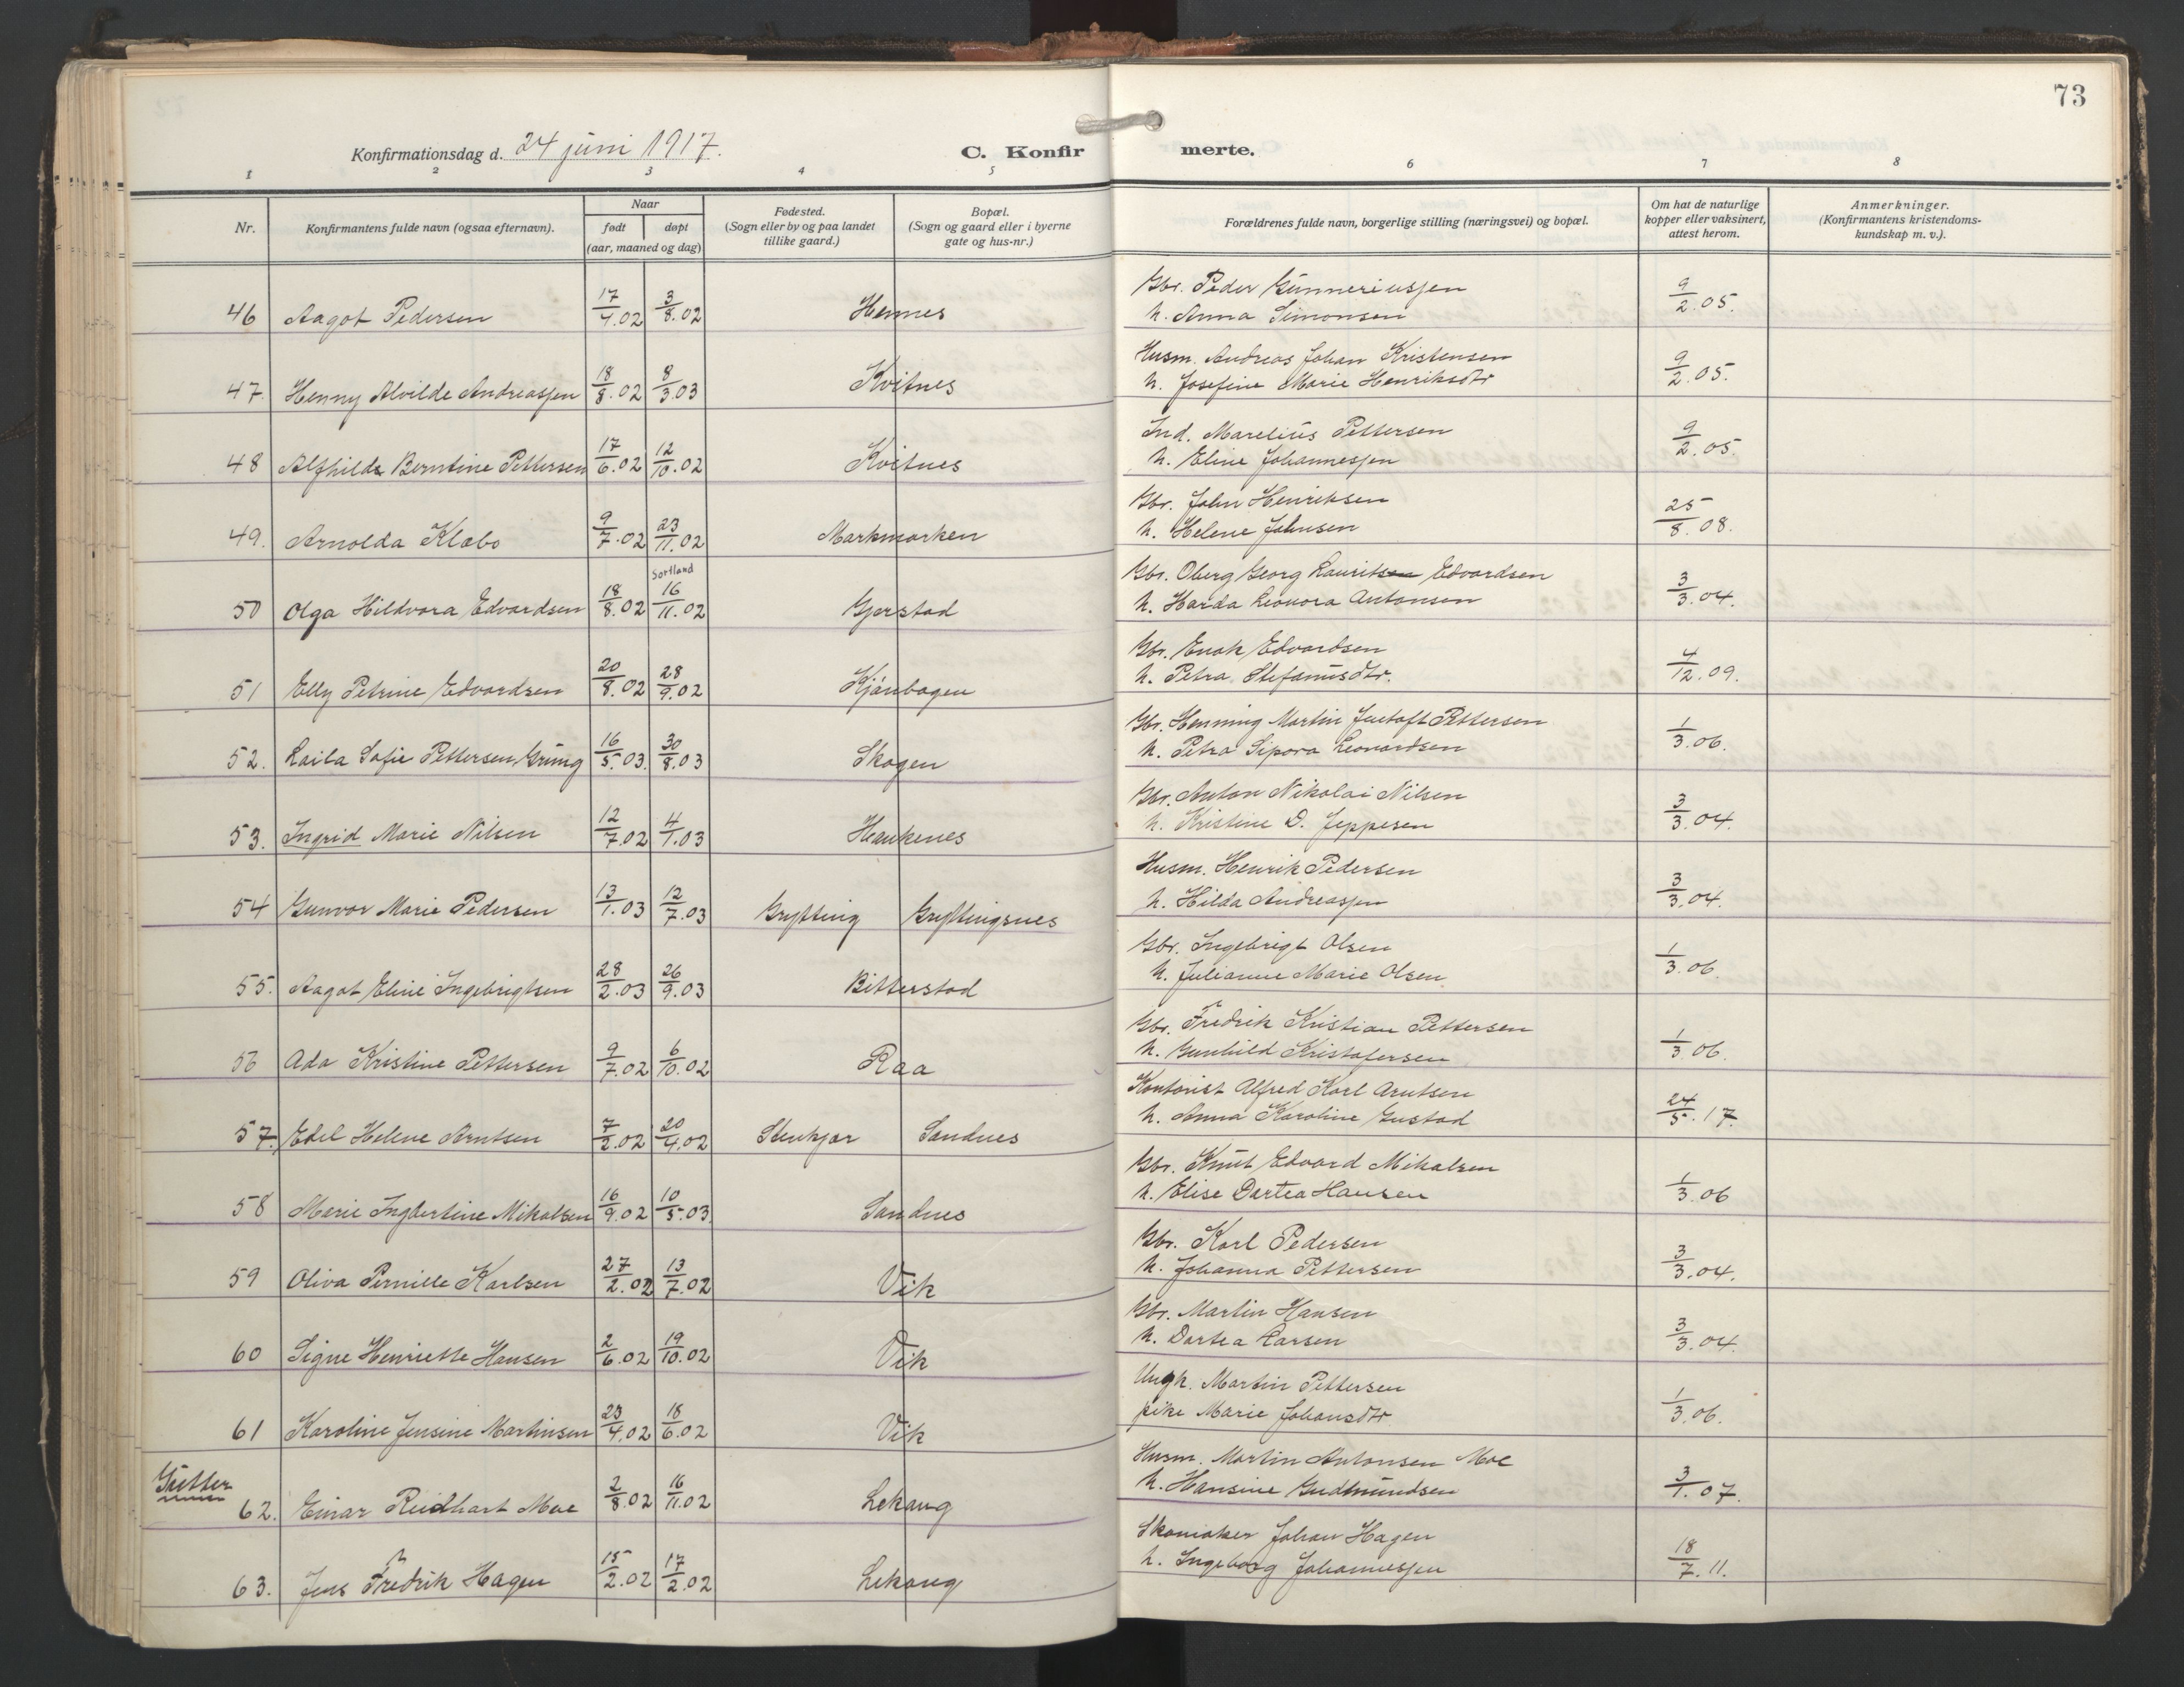 73
Konfirmationsdag d. 24 juni 1917.
C. Konfirmerte.
1 2 3 4 5 6 7 8
Nr.
Konfirmantens fulde navn (ogsaa efternavn).
Naar
født
døpt
(aar, maaned og dag)
Fødested.
(Sogn eller by og paa landet
tillike gaard.)
Bopæl.
(Sogn og gaard eller i byerne
gate og hus-nr.)
Forældrenes fulde navn, borgerlige stilling (næringsvei) og bopæl.
Om hat de naturlige
kopper eller vaksinert,
attest herom.
Anmerkninger.
(Konfirmantens kristendoms-
kundskap m. v.).
46 Aagot Pedersen 17/4.02 3/8.02 Hennes Gbr. Peder Gunneriussen
h. Anna Simonsen 9/2.05.
47. Henny Alvilde Andreassen 18/8.02 8/3.03 Kvitnes Husm. Andreas Johan Kristensen
h. Josefine Marie Henriksdtr 9/2.05.
48 Alfhilda Berntine Pettersen 17/6.02 12/10.02 Kvitnes Ind. Marelius Pettersen
h. Eline Johannessen 9/2.05.
49. Arnolda Klæbo 9/7.02 23/11.02 Markmarken Gbr. John Henriksen
h. Helene Johnsen 25/8.08.
50 Olga Hildvora Edvardsen 18/8.02 Sortland 16/11.02 Gjerstad Gbr. Oberg Georg Lauritsen Edvardsen
h. Harda Leonora Antonsen 3/3.04.
51 Elly Petrine Edvardsen 20/8.02 28/9.02 Kjörbogen Gbr. Enok Edvardsen
h. Petra Stefanusdtr. 4/12.09.
52. Laila Sofie Pettersen, Grung 16/5.03. 30/8.03 Skogen Gbr. Henning Martin Jentoft Pettersen
h. Petra Sipora Leonardsen 1/3.06.
53. Ingrid Marie Nilsen 12/7.02 4/1.03 Haukenes Gbr. Anton Nikolai Nilsen
h. Kristine D. Jeppesen 3/3.04.
54 Gunvor Marie Pedersen 13/1.03 12/7.03 Grytting Gryttingsnes Husm. Henrik Pedersen
h. Hilda Andreassen 3/3.04.
55. Aagot Eline Ingebrigtsen 28/2.03 26/9.03 Bitterstad Gbr. Ingebrigt Olsen
h. Julianne Marie Olsen 1/3.06.
56 Ada Kristine Pettersen 9/7.02 6/10.02 Raa Gbr. Fredrik Kristian Pettersen
h. Gunhild Kristofersen 1/3.06.
57. Edel Helene Arntsen 7/2.02 20/4.02 Stenkjær Sandnes Kontorist Alfred Karl Arntsen
h. Anna Karoline Gustad 24/5.17.
58 Marie Ingbertine Mikalsen 16/9.02 10/5.03 Sandnes Gbr. Knut Edvard Mikalsen
h. Elise Dortea Hansen 1/3.06
59 Oliva Pernille Karlsen 27/2.02 13/7.02 Vik Gbr. Karl Pedersen
h. Johanna Pettersen 3/3.04.
60 Signe Henriette Hansen 2/6.02 19/10.02 Vik Gbr. Martin Hansen
h. Dortea Larsen 3/3.04.
61 Karoline Jensine Martinsen 23/4.02 18/6.02 Vik Ungk. Martin Pettersen
pike Marie Johansdtr 1/3.06.
Gutter
62. Einar Reidhart Moe 2/8.02 16/11.02 Lekang Husm. Martin Antonsen Moe
h. Hansine Gudmundsen 3/1.07.
63. Jens Fredrik Hagen 15/2.02 17/2.02 Lekang Skomaker Johan Hagen
h. Ingeborg Johannessen 18/7.11.